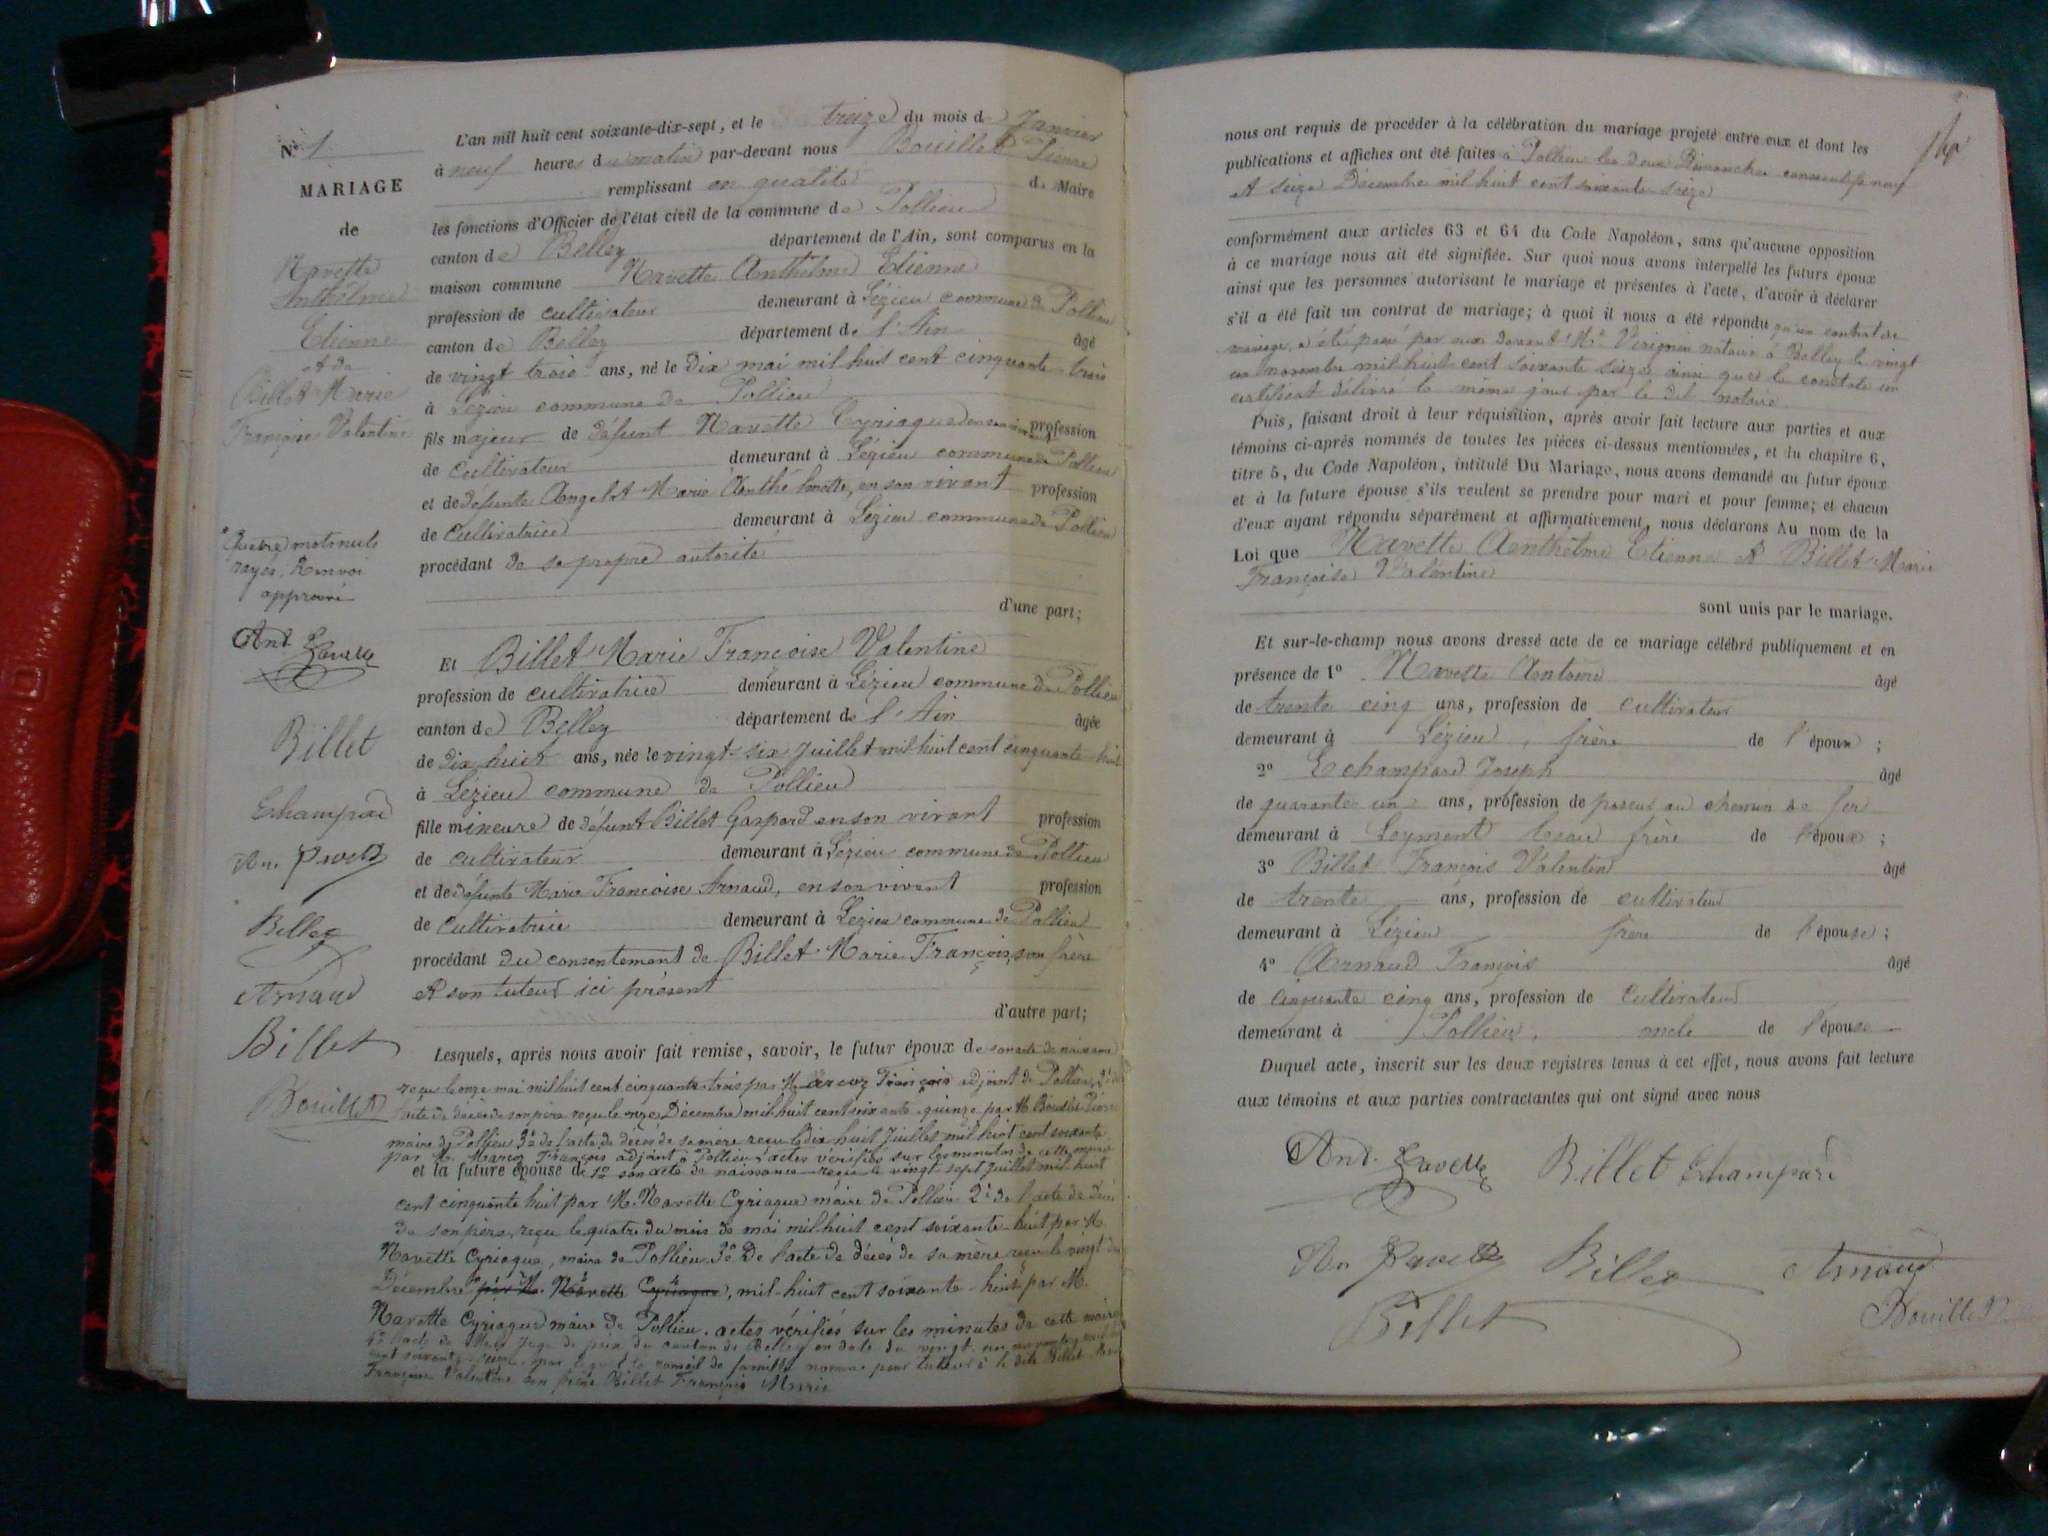 N° 1
MARIAGE
de
Navette
Anthelme
Etienne
et de
Billet Marie
Françoise Valentine
Quatre mots nuls
rayés, Renvoi
approuvé
Ant. Navette
Billet
Echampard
An. Navette
Billet
Arnaud
Billet
Bouillet
L'an mil huit cent soixante-dix-sept, et le treize du mois de Janvier
à neuf heures du matin par-devant nous Bouillet Pierre
remplissant en qualité de Maire
les fonctions d'Officier de l'état civil de la commune de Pollieu
canton de Belley département de l'Ain, sont comparus en la
maison commune Navette Anthelme Etienne
profession de cultivateur demeurant à Lézieu commune de Pollieu
canton de Belley département de l'Ain âgé
de vingt trois ans, né le dix mai mil huit cent cinquante trois
à Lézieu commune de Pollieu
fils majeur de défunt Navette Cyriaque en son vivant profession
de cultivateur demeurant à Lézieu commune de Pollieu
et de défunte Angelot Marie Anthelmette, en son vivant profession
de cultivatrice demeurant à Lézieu commune de Pollieu
procédant de sa propre autorité
d'une part;
Et Billet Marie Françoise Valentine
profession de cultivatrice demeurant à Lézieu commune de Pollieu
canton de Belley département de l'Ain âgée
de dix huit ans, née le vingt-six Juillet mil huit cent cinquante huit
à Lézieu commune de Pollieu
fille mineure de défunt Billet Gaspard en son vivant profession
de cultivateur demeurant à Lézieu commune de Pollieu
et de défunte Marie Françoise Arnaud, en son vivant profession
de cultivatrice demeurant à Lézieu commune de Pollieu
procédant du consentement de Billet Marie François, son frère
et son tuteur ici présent
d'autre part;
Lesquels, après nous avoir fait remise, savoir, le futur époux de son acte de naissance
reçu le onze mai mil huit cent cinquante trois par M. Marcoz François adjoint de Pollieu, 2° de
l'acte de décès de son père reçu le onze Décembre mil huit cent soixante quinze par M. Bouillet Pierre
maire de Pollieu 3° de l'acte de décès de sa mère reçu le dix huit Juillet mil huit cent soixante
par M. Marcoz François adjoint à Pollieu, actes vérifiés sur les minutes de cette mairie
et la future épouse de 1° son acte de naissance reçu le vingt sept Juillet mil huit
cent cinquante huit par M. Navette Cyriaque maire de Pollieu 2° de l'acte de décès
de son père, reçu le quatre du mois de mai mil huit cent soixante huit par M.
Navette Cyriaque, maire de Pollieu 3° De l'acte de décès de sa mère reçu le vingt
Décembre par M. Navette Cyriaque, mil huit cent soixante huit par M.
Navette Cyriaque maire de Pollieu. actes vérifiés sur les minutes de cette mairie
4° l'acte de Mr le Juge de paix du canton de Belley en date du vingt un novembre mil huit
cent soixante seize, par lequel le conseil de famille nomme pour tuteur à la dite Billet Marie
Françoise Valentine son frère Billet François Marie
nous ont requis de procéder à la célébration du mariage projeté entre eux et dont les
publications et affiches ont été faites à Pollieu les deux Dimanches consécutifs neuf
et seize Décembre mil huit cent soixante seize
conformément aux articles 63 et 64 du Code Napoléon, sans qu'aucune opposition
à ce mariage nous ait été signifiée. Sur quoi nous avons interpellé les futurs époux
ainsi que les personnes autorisant le mariage et présentes à l'acte, d'avoir à déclarer
s'il a été fait un contrat de mariage; à quoi il nous a été répondu qu'un contrat de
mariage a été passé par eux devant Me notaire à Belley le vingt
un novembre mil huit cent soixante seize ainsi que le constate un
certificat délivré le même jour par le dit notaire
Puis, faisant droit à leur réquisition, après avoir fait lecture aux parties et aux
témoins ci-après nommés de toutes les pièces ci-dessus mentionnées, et du chapitre 6,
titre 5, du Code Napoléon, intitulé Du Mariage, nous avons demandé au futur époux
et à la future épouse s'ils veulent se prendre pour mari et pour femme; et chacun
d'eux ayant répondu séparément et affirmativement, nous déclarons Au nom de la
Loi que Navette Anthelme Etienne et Billet Marie
Françoise Valentine
sont unis par le mariage.
Et sur-le-champ nous avons dressé acte de ce mariage célébré publiquement et en
présence de 1° Navette Antoine âgé
de trente cinq ans, profession de cultivateur
demeurant à Lézieu, frère de l'époux;
2° Echampard Joseph âgé
de quarante un ans, profession de poseur au chemin de fer
demeurant à Leyment beau frère de l'époux;
3° Billet François Valentin âgé
de trente ans, profession de cultivateur
demeurant à Lézieu frère de l'épouse;
4° Arnaud François âgé
de cinquante cinq ans, profession de cultivateur
demeurant à Pollieu, oncle de l'épouse
Duquel acte, inscrit sur les deux registres tenus à cet effet, nous avons fait lecture
aux témoins et aux parties contractantes qui ont signé avec nous
Ant. Navette Billet Echampard
An Navette Billet Arnaud
Billet Bouillet